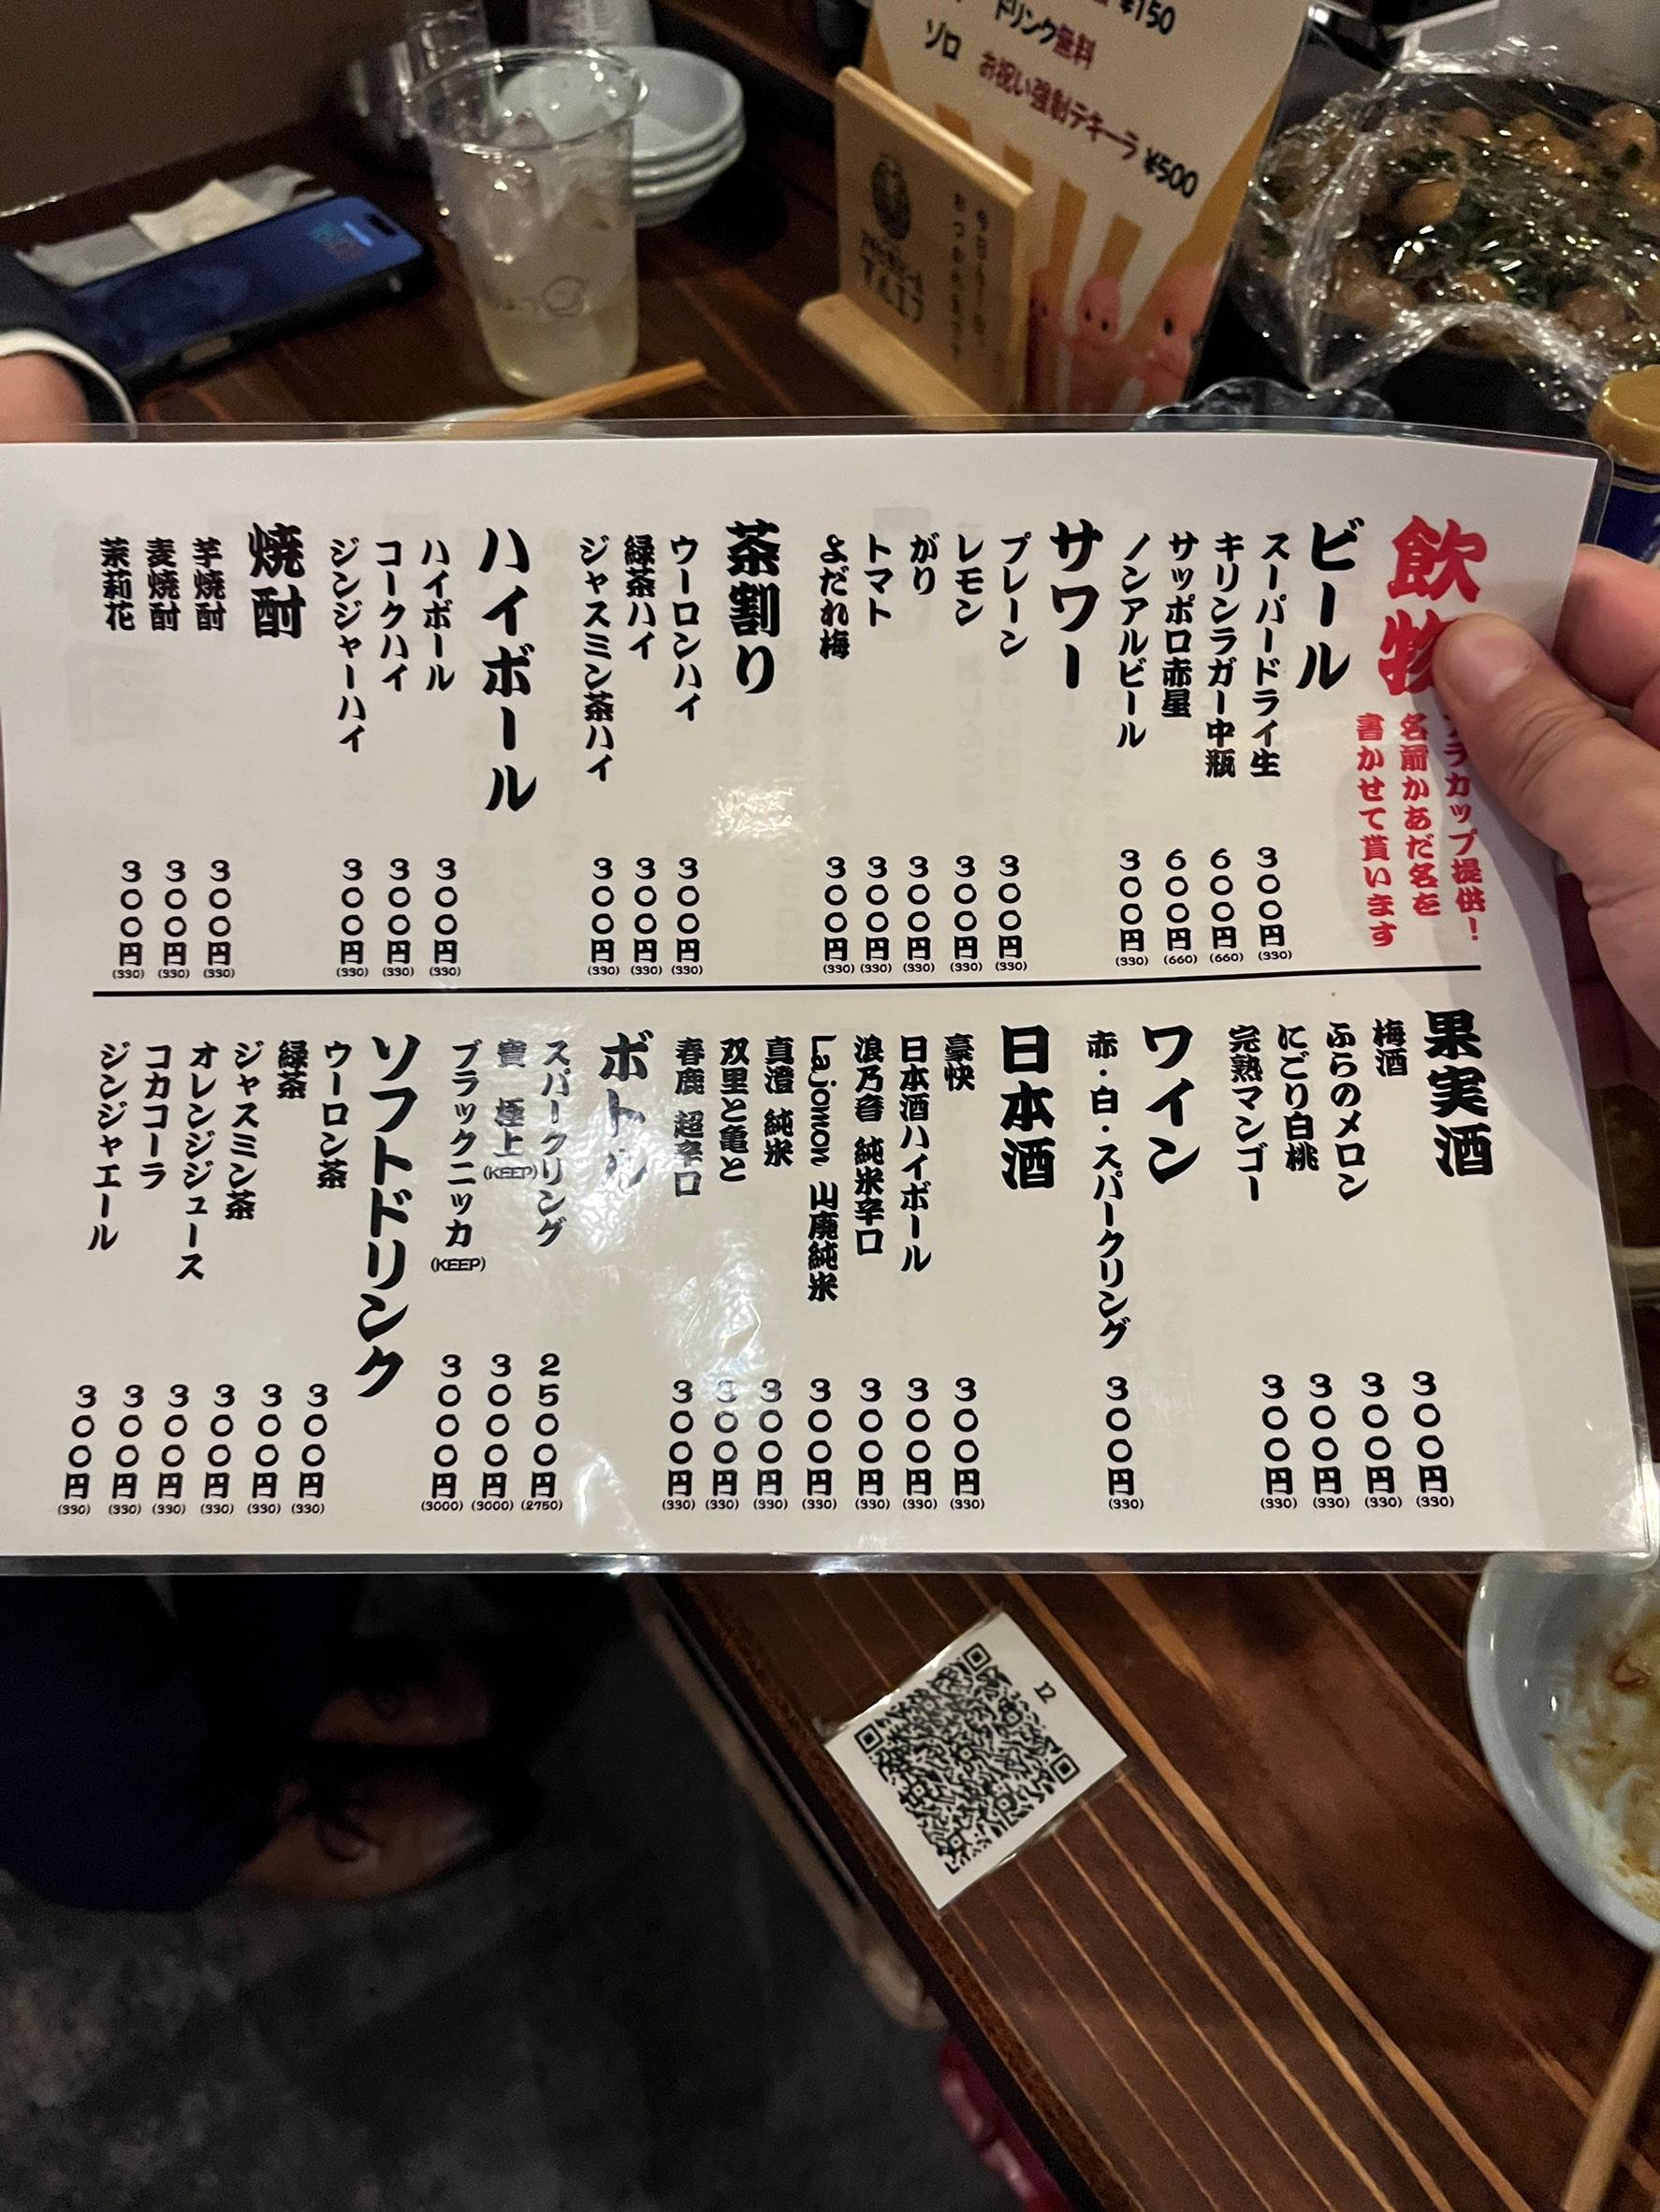 ¥150
ドリンク無料
ゾロ お祝い強制テキーラ ¥500
飲物
カップ提供!
名前かあだ名を
書かせて貰います
ビール
スーパードライ生 300円(330)
キリンラガー中瓶 600円(660)
サッポロ赤星 600円(660)
ノンアルビール 300円(330)
サワー
プレーン 300円(330)
レモン 300円(330)
がり 300円(330)
トマト 300円(330)
よだれ梅 300円(330)
茶割り
ウーロンハイ 300円(330)
緑茶ハイ 300円(330)
ジャスミン茶ハイ 300円(330)
ハイボール
ハイボール 300円(330)
コークハイ 300円(330)
ジンジャーハイ 300円(330)
焼酎
芋焼酎 300円(330)
麦焼酎 300円(330)
茉莉花 300円(330)
果実酒
梅酒 300円(330)
ふらのメロン 300円(330)
にごり白桃 300円(330)
完熟マンゴー 300円(330)
ワイン
赤・白・スパークリング 300円(330)
日本酒
豪快 300円(330)
日本酒ハイボール 300円(330)
浪乃音 純米辛口 300円(330)
Lajomon 山廃純米 300円(330)
真澄 純米 300円(330)
双里と亀と 300円(330)
春鹿 超辛口 300円(330)
ボトル
スパークリング 2500円(2750)
寶 極上(KEEP) 3000円(3000)
ブラックニッカ(KEEP) 3000円(3000)
ソフトドリンク
ウーロン茶 300円(330)
緑茶 300円(330)
ジャスミン茶 300円(330)
オレンジジュース 300円(330)
コカコーラ 300円(330)
ジンジャエール 300円(330)
12